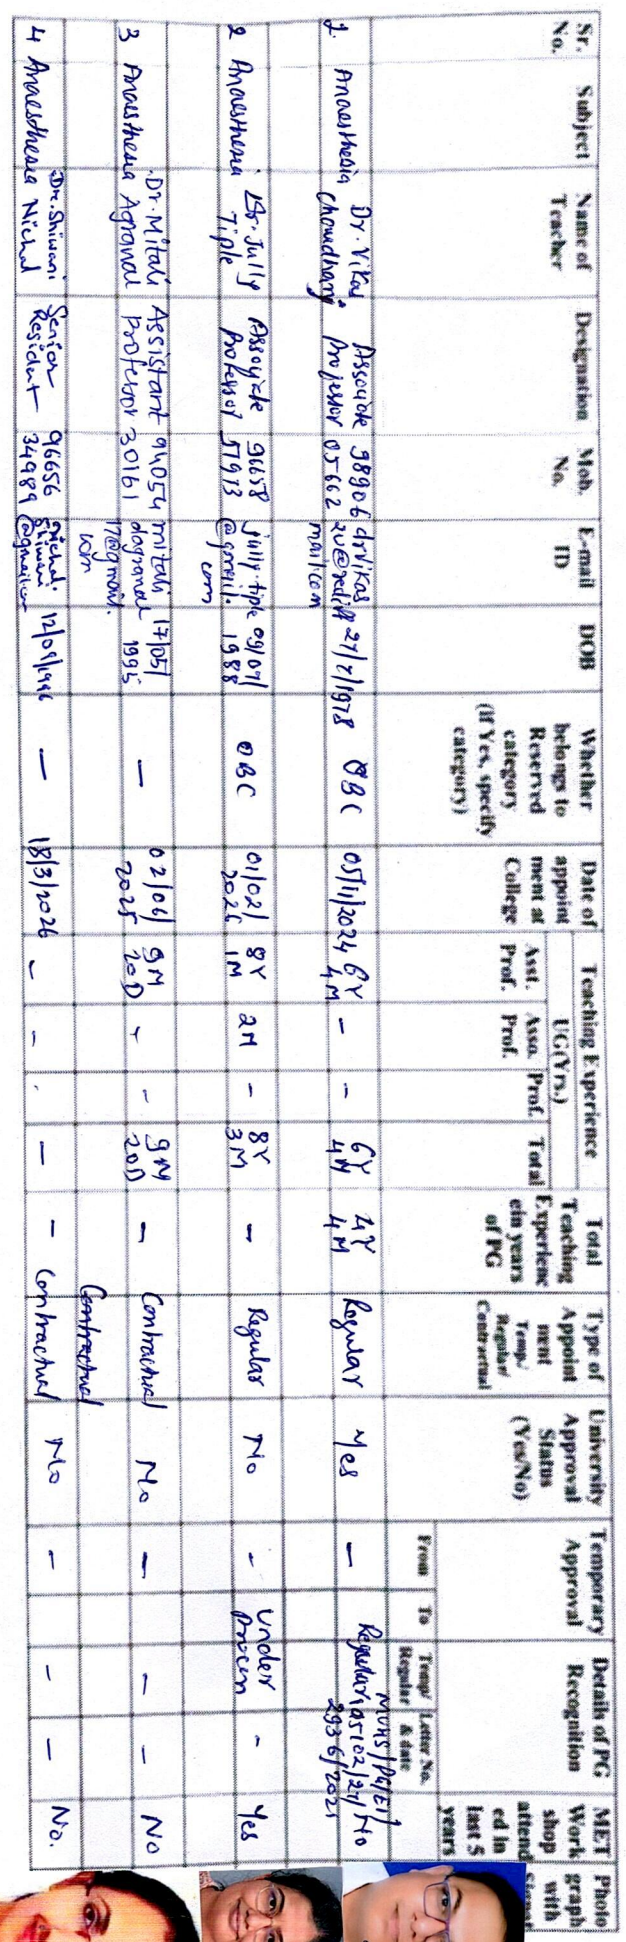 Sr. No.
Subject
Name of Teacher
Designation
Mob. No.
E-mail ID
DOB
Whether belongs to Reserved category (if Yes, specify category)
Date of appoint ment at College
Teaching Experience
UG(Yrs.)
Asst. Prof.
Asso. Prof.
Prof.
Total
Total Teaching Experienc ein years of PG
Type of Appoint ment Temp/ Regular/ Contractual
University Approval Status (Yes/No)
Temporary Approval
From
To
Details of PG Recognition
Temp/ Regular
Letter No. & date
MET Work shop attend ed in last 5 years
Photo graph with
1. Anaesthesia Dr. Vikas Choudhary Associate Professor 98906 05662 drvikas 2v@rediff mail.com 27/7/1978 OBC 05/11/2024 6Y 4M - - 6Y 4M 4Y 4M Regular Yes - Regular MUHS/PG/E1/ 2936/2021 No
2 Anaesthesia Dr. Jully Tiple Associate Professor 96658 57913 jully.tiple @gmail. com 09/07/ 1988 OBC 01/02/ 8Y 1M 2M - 8Y 3M - Regular No - Under Process - Yes
3 Anaesthesia Dr. Mitali Agrawal Assistant Professor 94054 30161 mitali dagrawal 17@gmail. com 17/05/ 1995 - 02/06/ 2025 9M 20D - - 9M 20D - Contractual No - - - No
Contractual
4 Anaesthesia Dr. Shiwani Nichal Senior Resident 96656 34989 nichal. shiwani @gmail.com 12/09/1996 - 18/3/2026 - - - - Contractual No - - - No.